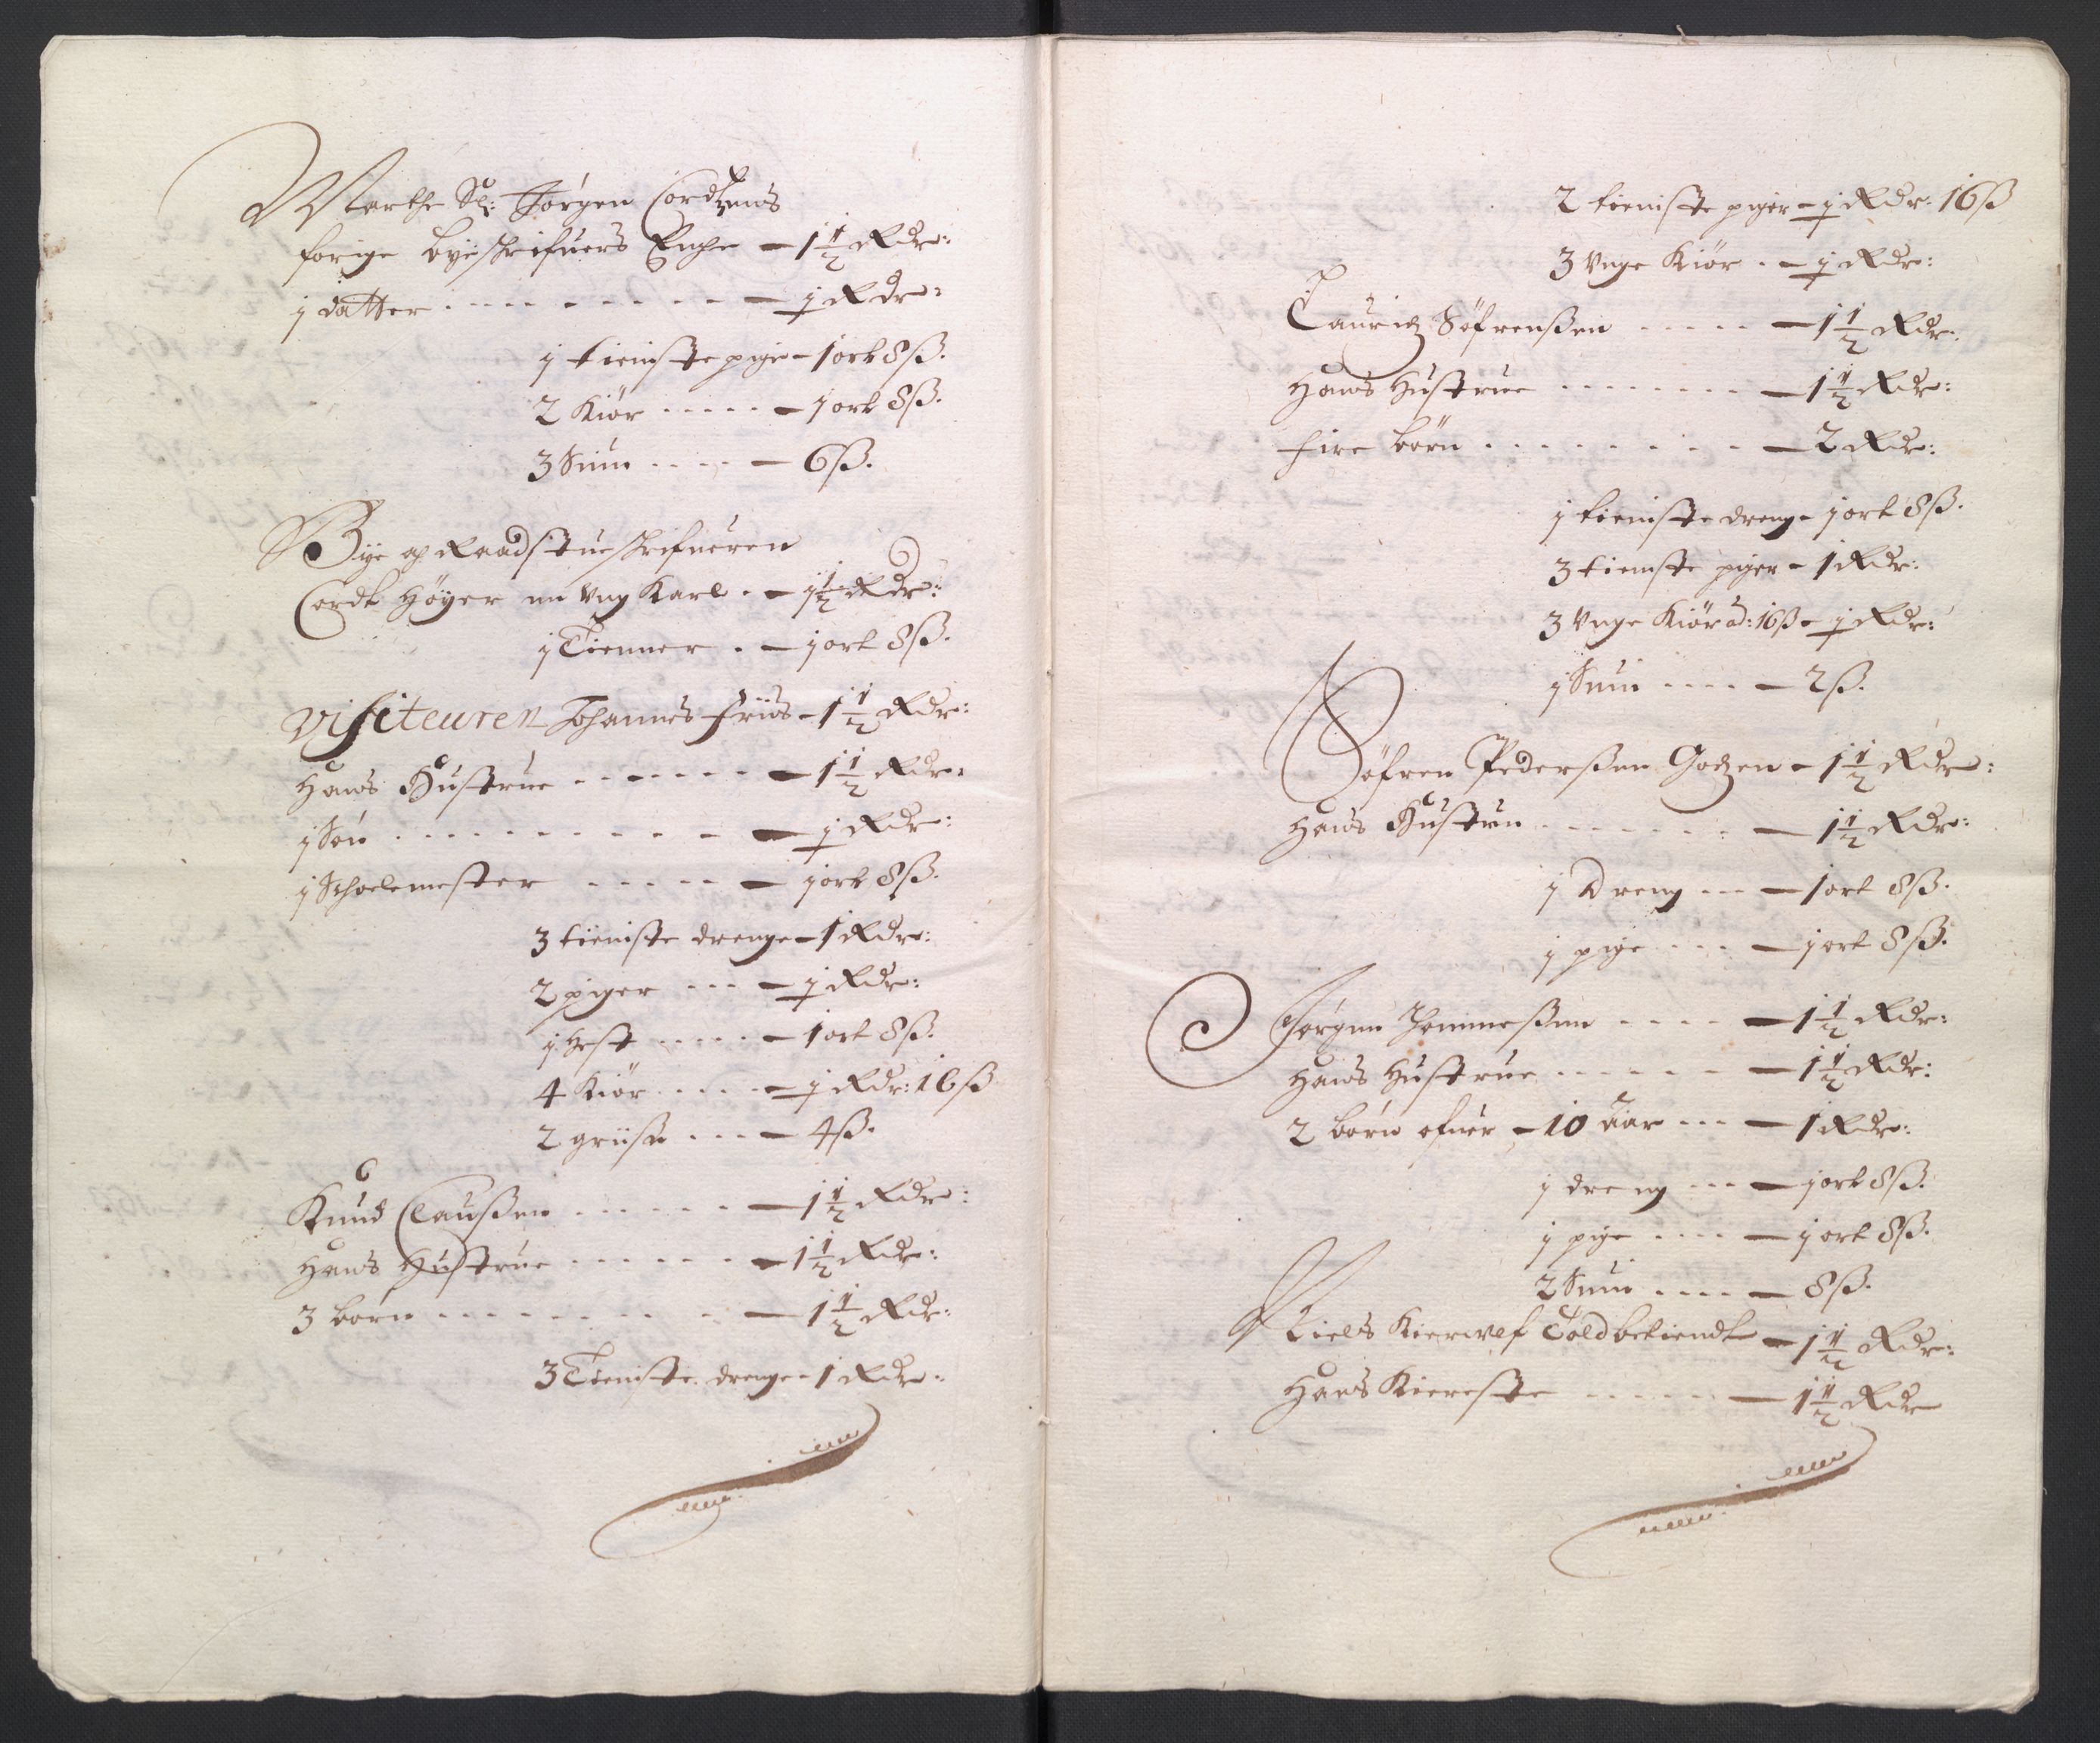 Marthe Sl: Jórgen Cordtzens
forige byeschrifuers Enche – 1½ Rdr:
j datter – ½ Rdr:
j tieniste pige – 1 ort 8 ß.
2 Kiör – j ort 8 ß.
3 Suin – 6 ß.
Bye og Raadstueschrifueren
Cordt Höyer en Ung Karl – 1½ Rdr:
j Tienner – j ort 8 ß.
Visiteuren Johannes Friis – 1½ Rdr:
Hans Hustrue – 1½ Rdr:
j Són – ½ Rdr:
j Scholemester – j ort 8 ß.
3 tieniste drenge – 1 Rdr:
2 piger – ½ Rdr:
j Hest – 1 ort 8 ß.
4 Kiör – ½ Rdr: 16 ß
2 griise – 4 ß.
Knud Claußen – 1½ Rdr:
Hans Hustrue – 1½ Rdr:
3 börn – 1½ Rdr:
3 Tieniste drenge – 1 Rdr:
2 tieniste piger – ½ Rdr: 16 ß
3 Unge Kiör – ½ Rdr:
Lauridz Söfrenßen – 1½ Rdr:
Hans Hustrue – 1½ Rdr:
fire börn – 2 Rdr:
j tieniste dreng – j ort 8 ß.
3 tieniste piger – 1 Rdr:
3 Unge Kiör ad: 16 ß – ½ Rdr:
j Suin – 2 ß.
Söfren Pederßen Godzen – 1½ Rdr:
Hans Hustru – 1½ Rdr:
j Dreng – 1 ort 8 ß.
j pige – j ort 8 ß.
Jórgen Thommeßen – 1½ Rdr:
Hans Hustrue – 1½ Rdr:
2 börn ofuer – 10 aar – 1 Rdr:
j dreng – j ort 8 ß.
j pige – j ort 8 ß.
2 Suin – 8 ß.
Niels Kierulf Toldbetiendt – 1½ Rdr:
Hans Kiereste – 1½ Rdr